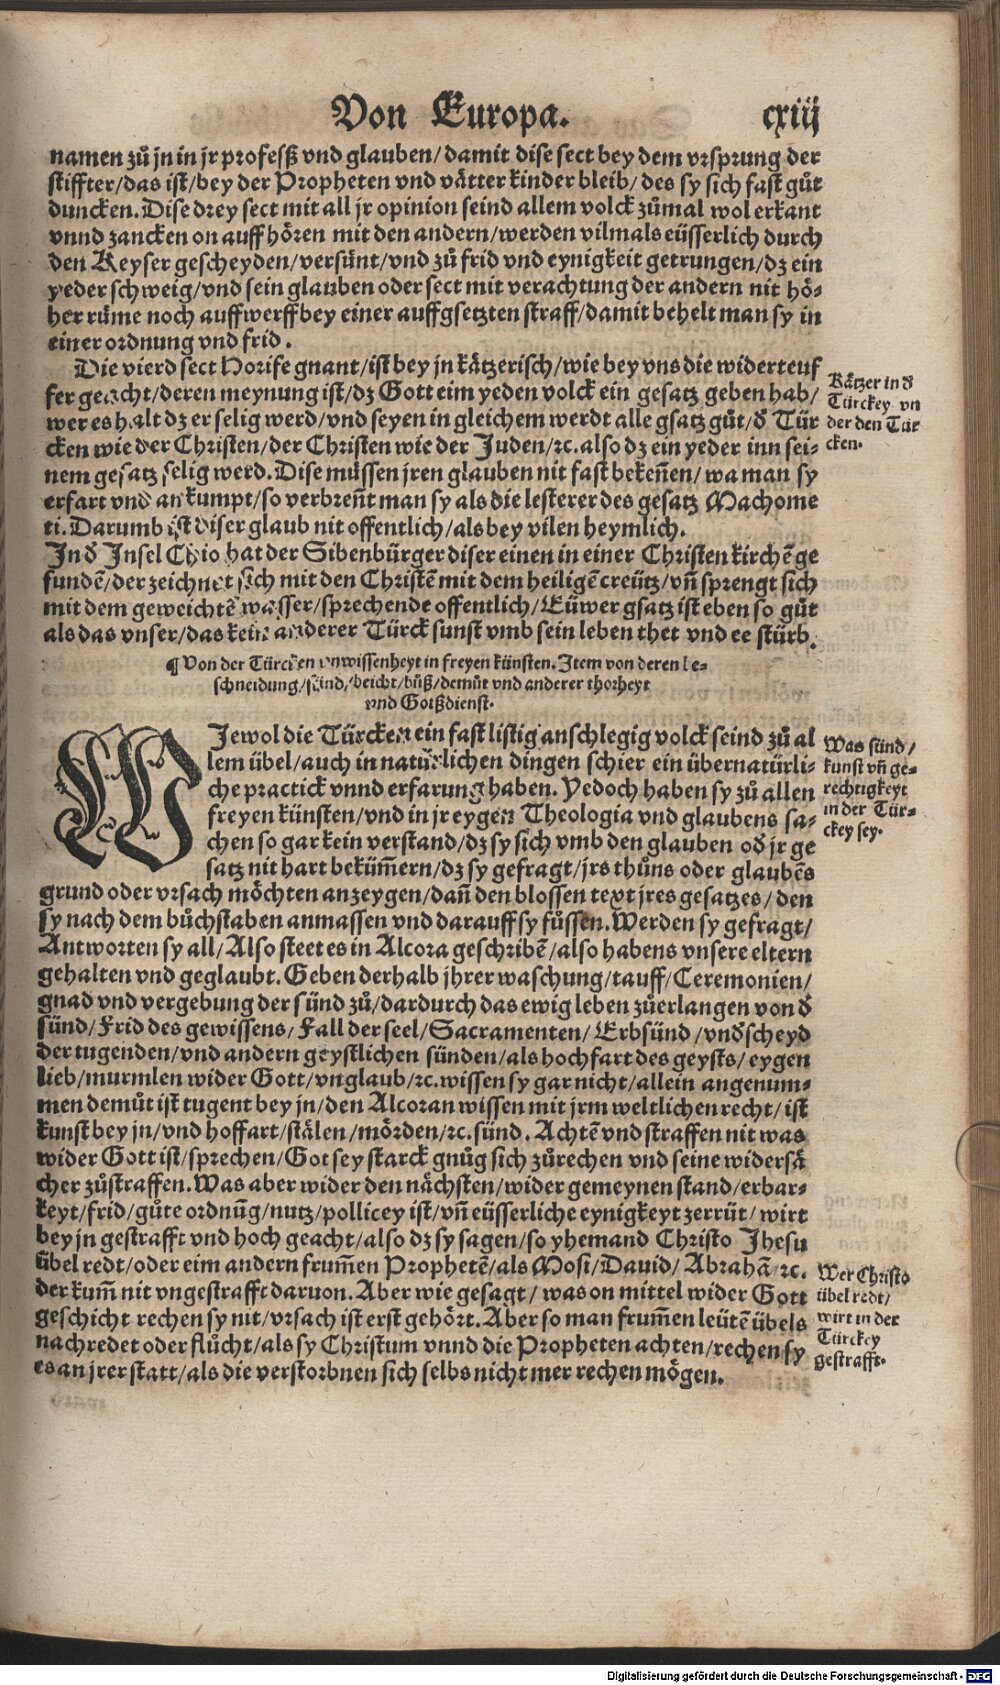 Von Europa. cxiij
namen zů jn in jr profeſß vnd glauben/ damit diſe ſect bey dem vrſprung der
ſtiffter/ das iſt/ bey der Propheten vnd vaͤtter kinder bleib/ des ſy ſich faſt gůt
duncken. Diſe drey ſect mit all jr opinion ſeind allem volck zůmal wol erkant
vnnd zancken on auff hoͤren mit den andern/ werden vilmals eüſſerlich durch
den Keyſer geſcheyden/ verſuͤnt/ vnd zů frid vnd eynigkeit getrungen/ dz ein
yeder ſchweig/ vnd ſein glauben oder ſect mit verachtung der andern nit hoͤ⸗
her ruͤme noch auffwerff bey einer auffgſetzten ſtraff/ damit behelt man ſy in
einer ordnung vnd frid.
Die vierd ſect Horife gnant/ iſt bey jn kaͤtzeriſch/ wie bey vns die widerteuf
fer geacht/ deren meynung iſt/ dz Gott eim yeden volck ein geſatz geben hab/
wer es halt dz er ſelig werd/ vnd ſeyen in gleichem werdt alle gſatz gůt/ ð Tür
cken wie der Chriſten/ der Chriſten wie der Juden/ ꝛc. alſo dz ein yeder inn ſei⸗
nem geſatz ſelig werd. Diſe můſſen jren glauben nit faſt bekeñen/ wa man ſy
erfart vnd an kumpt/ ſo verbreñt man ſy als die leſterer des geſatz Machome
ti. Darumb iſt diſer glaub nit offentlich/ als bey vilen heymlich.
Kaͤtzer in ð
Türckey vn
der den Tür
cken.
In ð Inſel Chio hat der Sibenbürger diſer einen in einer Chriſten kirchẽ ge
fundẽ/ der zeichnet ſich mit den Chriſtẽ mit dem heiligẽ creütz/ vñ ſprengt ſich
mit dem geweichtẽ waſſer/ ſprechende offentlich/ Eüwer gſatz iſt eben ſo gůt
als das vnſer/ das kein anderer Türck ſunſt vmb ſein leben thet vnd ee ſtürb.
¶ Von der Türcken vnwiſſenheyt in freyen künſten. Item von deren be⸗
ſchneidung/ ſünd/ beicht/ bůß/ demůt vnd anderer thorheyt
vnd Gotßdienſt.
WJewol die Türcken ein faſt liſtig anſchlegig volck ſeind zů al
lem übel/ auch in natürlichen dingen ſchier ein übernatürli⸗
che practick vnnd erfarung haben. Yedoch haben ſy zů allen
freyen künſten/ vnd in jr eygen Theologia vnd glaubens ſa⸗
chen ſo gar kein verſtand/ dz ſy ſich vmb den glauben oð jr ge
ſatz nit hart bekům̃ern/ dz ſy gefragt/ jrs thůns oder glaubẽs
grund oder vrſach moͤchten anzeygen/ dañ den bloſſen text jres geſatzes/ den
ſy nach dem bůchſtaben anmaſſen vnd darauff ſy fůſſen. Werden ſy gefragt/
Antworten ſy all/ Alſo ſteet es in Alcora geſchribẽ/ alſo habens vnſere eltern
gehalten vnd geglaubt. Geben derhalb jhrer waſchung/ tauff/ Ceremonien/
gnad vnd vergebung der ſünd zů/ dardurch das ewig leben zůerlangen von ð
ſünd/ Frid des gewiſſens/ Fall der ſeel/ Sacramenten/ Erbſünd/ vnðſcheyd
der tugenden/ vnd andern geyſtlichen ſünden/ als hochfart des geyſts/ eygen
lieb/ murmlen wider Gott/ vnglaub/ ꝛc. wiſſen ſy gar nicht/ allein angenum⸗
men demůt iſt tugent bey jn/ den Alcoran wiſſen mit jrm weltlichen recht/ iſt
kunſt bey jn/ vnd hoffart/ ſtaͤlen/ moͤrden/ ꝛc. ſünd. Achtẽ vnd ſtraffen nit was
wider Gott iſt/ ſprechen/ Got ſey ſtarck gnůg ſich zůrechen vnd ſeine widerſaͤ
cher zůſtraffen. Was aber wider den naͤchſten/ wider gemeynen ſtand/ erbar⸗
keyt/ frid/ gůte ordnũg/ nutz/ pollicey iſt/ vñ eüſſerliche eynigkeyt zerrüt/ wirt
bey jn geſtrafft vnd hoch geacht/ alſo dz ſy ſagen/ ſo yhemand Chriſto Jheſu
übel redt/ oder eim andern frum̃en Prophetẽ/ als Moſi/ Dauid/ Abrahã/ ꝛc.
der kum̃ nit vngeſtrafft daruon. Aber wie geſagt/ was on mittel wider Gott
geſchicht rechen ſy nit/ vrſach iſt erſt gehoͤrt. Aber ſo man frum̃en leütẽ übels
nachredet oder flůcht/ als ſy Chriſtum vnnd die Propheten achten/ rechen ſy
es an jrer ſtatt/ als die verſtorbnen ſich ſelbs nicht mer rechen moͤgen.
Was ſünd/
kunſt vñ ge⸗
rechtigkeyt
in der Tür⸗
ckey ſey.
Wer Chriſto
übel redt/
wirt in der
Türckey
geſtrafft.
Digitalisierung gefördert durch die Deutsche Forschungsgemeinschaft - DFG